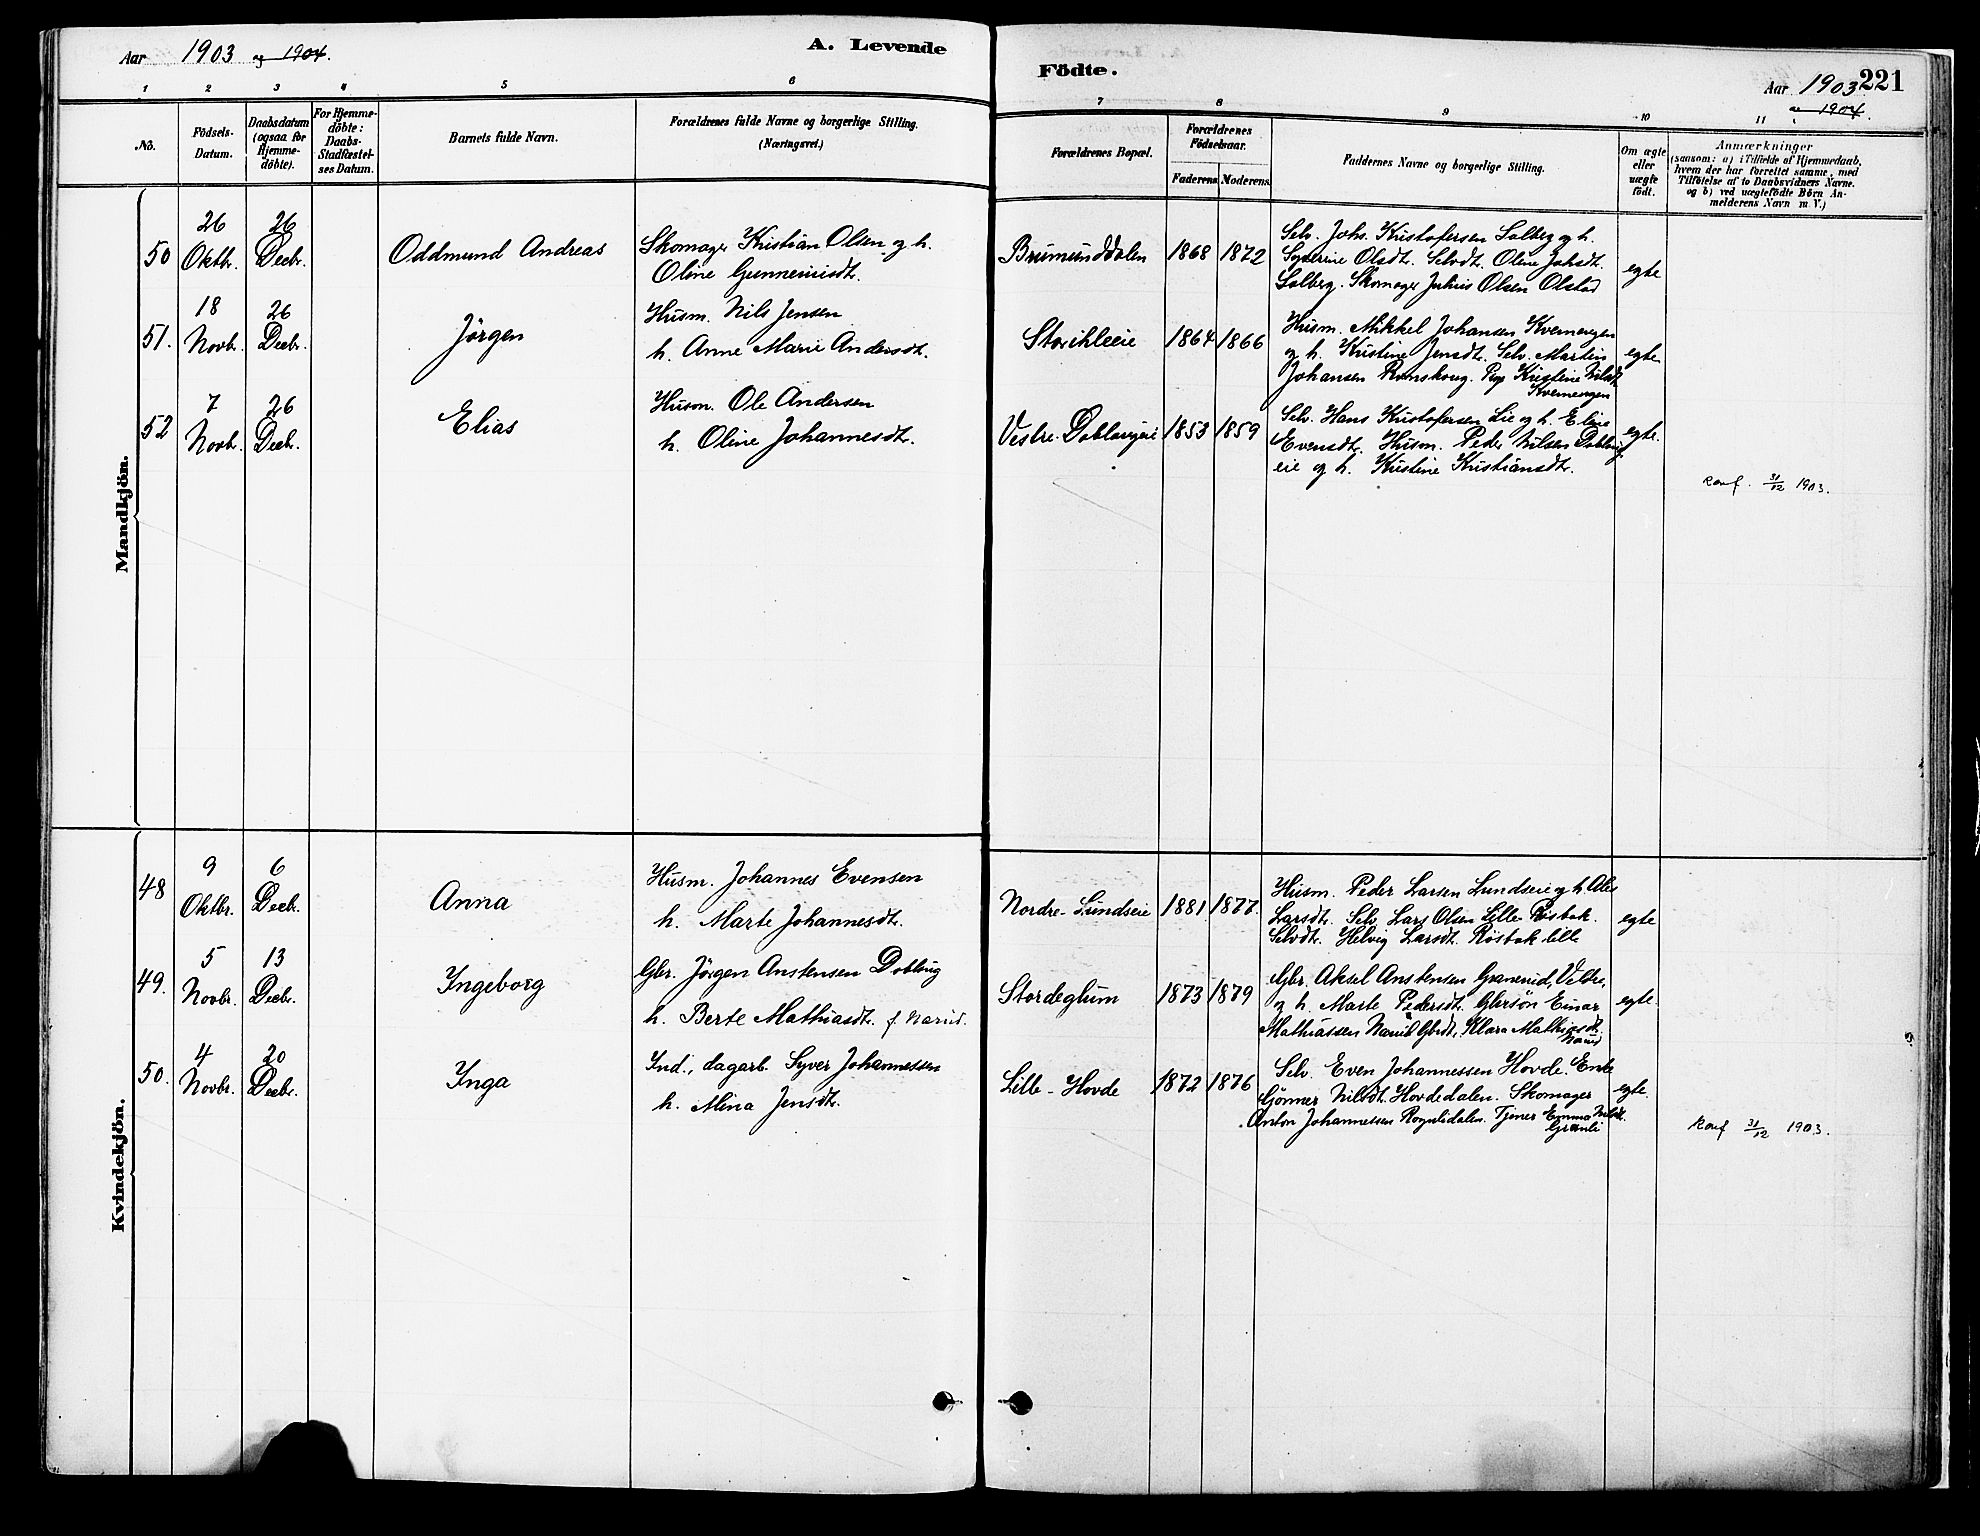 Aar 1903 og 1904.
A. Levende
1 2 3 4 5 6
No.
Födsels-
Datum.
Daabsdatum
(ogsaa for
Hjemme-
döbte).
For Hjemme-
döbte:
Daabs-
Stadfæstel-
ses Datum.
Barnets fulde Navn.
Forældrenes fulde Navne og borgerlige Stilling.
(Næringsvei.)
Mandkjön.
50
26
Oktbr.
26
Decbr.
Oddmund Andreas
Skomager Kristian Olsen og h.
Oline Gunnem
51.
18
Novbr.
26
Decbr.
Jörgen
Husm. Nils Jensen
h. Anne Marie Andersdt.
52
7
Novbr.
26
Decbr.
Elias
Husm. Ole Andersen
h. Oline Johannesdt.
Kvindekjön.
48
9
Oktbr.
6
Decbr.
Anna
Husm. Johannes Evensen
h. Marte Johannesdt.
49.
5
Novbr.
13
Decbr.
Ingeborg
Gbr. Jörgen Anstensen Doblug
h. Berte Mathiasdt. f. Narud.
50.
4
Novbr.
20
Decbr.
Inga
Ind., dagarb. Syver Johannessen
h. Mina Jensdt.
Födte.
Aar 1903 221
og 1904.
7 8 9 10 11
Forældrenes Bopæl.
Forældrenes
Födselsaar.
Faderens Moderens.
Faddernes Navne og borgerlige Stilling.
Om ægte
eller
uægte
födt.
Anmærkninger
(saasom: a) i Tilfælde af Hjemmedaab,
hvem der har forrettet samme, med
Tilföielse af to Daabsvidners Navne.
og b) ved uægtefödte Börn An-
melderens Navn m. V.)
Brumunddalen
1868 1872
Selv. Johs. Kristofersen Solberg og h.
Syverine Olsdt. Selvdt. Oline Johsdt.
Solberg. Skomager Julius Olsen Olstad
egte
Storihleeie
1864 1866
Husm. Mikkel Johansen Kvernengen
og h. Kristine Jensdt. Selv. Martin
Johansen Romskoug. Pige Kristine Nilsdt.
Kvernengen
egte
Vestre Doblougeie
1853 1859
Selv. Hans Kristofersen Lie og h. Eline
Evensdt. Husm. Peder Nilsen Doblug-
eie og h. Kristine Kristiansdt.
egte.
Konf. 31/12 1903.
Nordre-Lundseie
1881 1877.
Husm. Peder Larsen Lundseie og h. Ales
Larsdt. Selv. Lars Olsen Lille Rosbak.
Selvdt. Helvig Larsdt. Rösbak lille
egte
Stordeglum
1873 1879
Gbr. Aksel Anstensen Granerud, Veldre,
og h. Marte Pedersdt. Gbrsön Einar
Mathiassen Narud Gbrdt. Klara Mathiasdt.
Narud
egte.
Lille-Hovde
1872 1876
Selv. Even Johannessen Hovde. Enke
Gönner Nilsdt. Hovdedalen. Skomager
Anton Johannessen Rognlidalen. Tjener Emma Nilsdt.
Granli
egte.
Konf 31/12 1903.